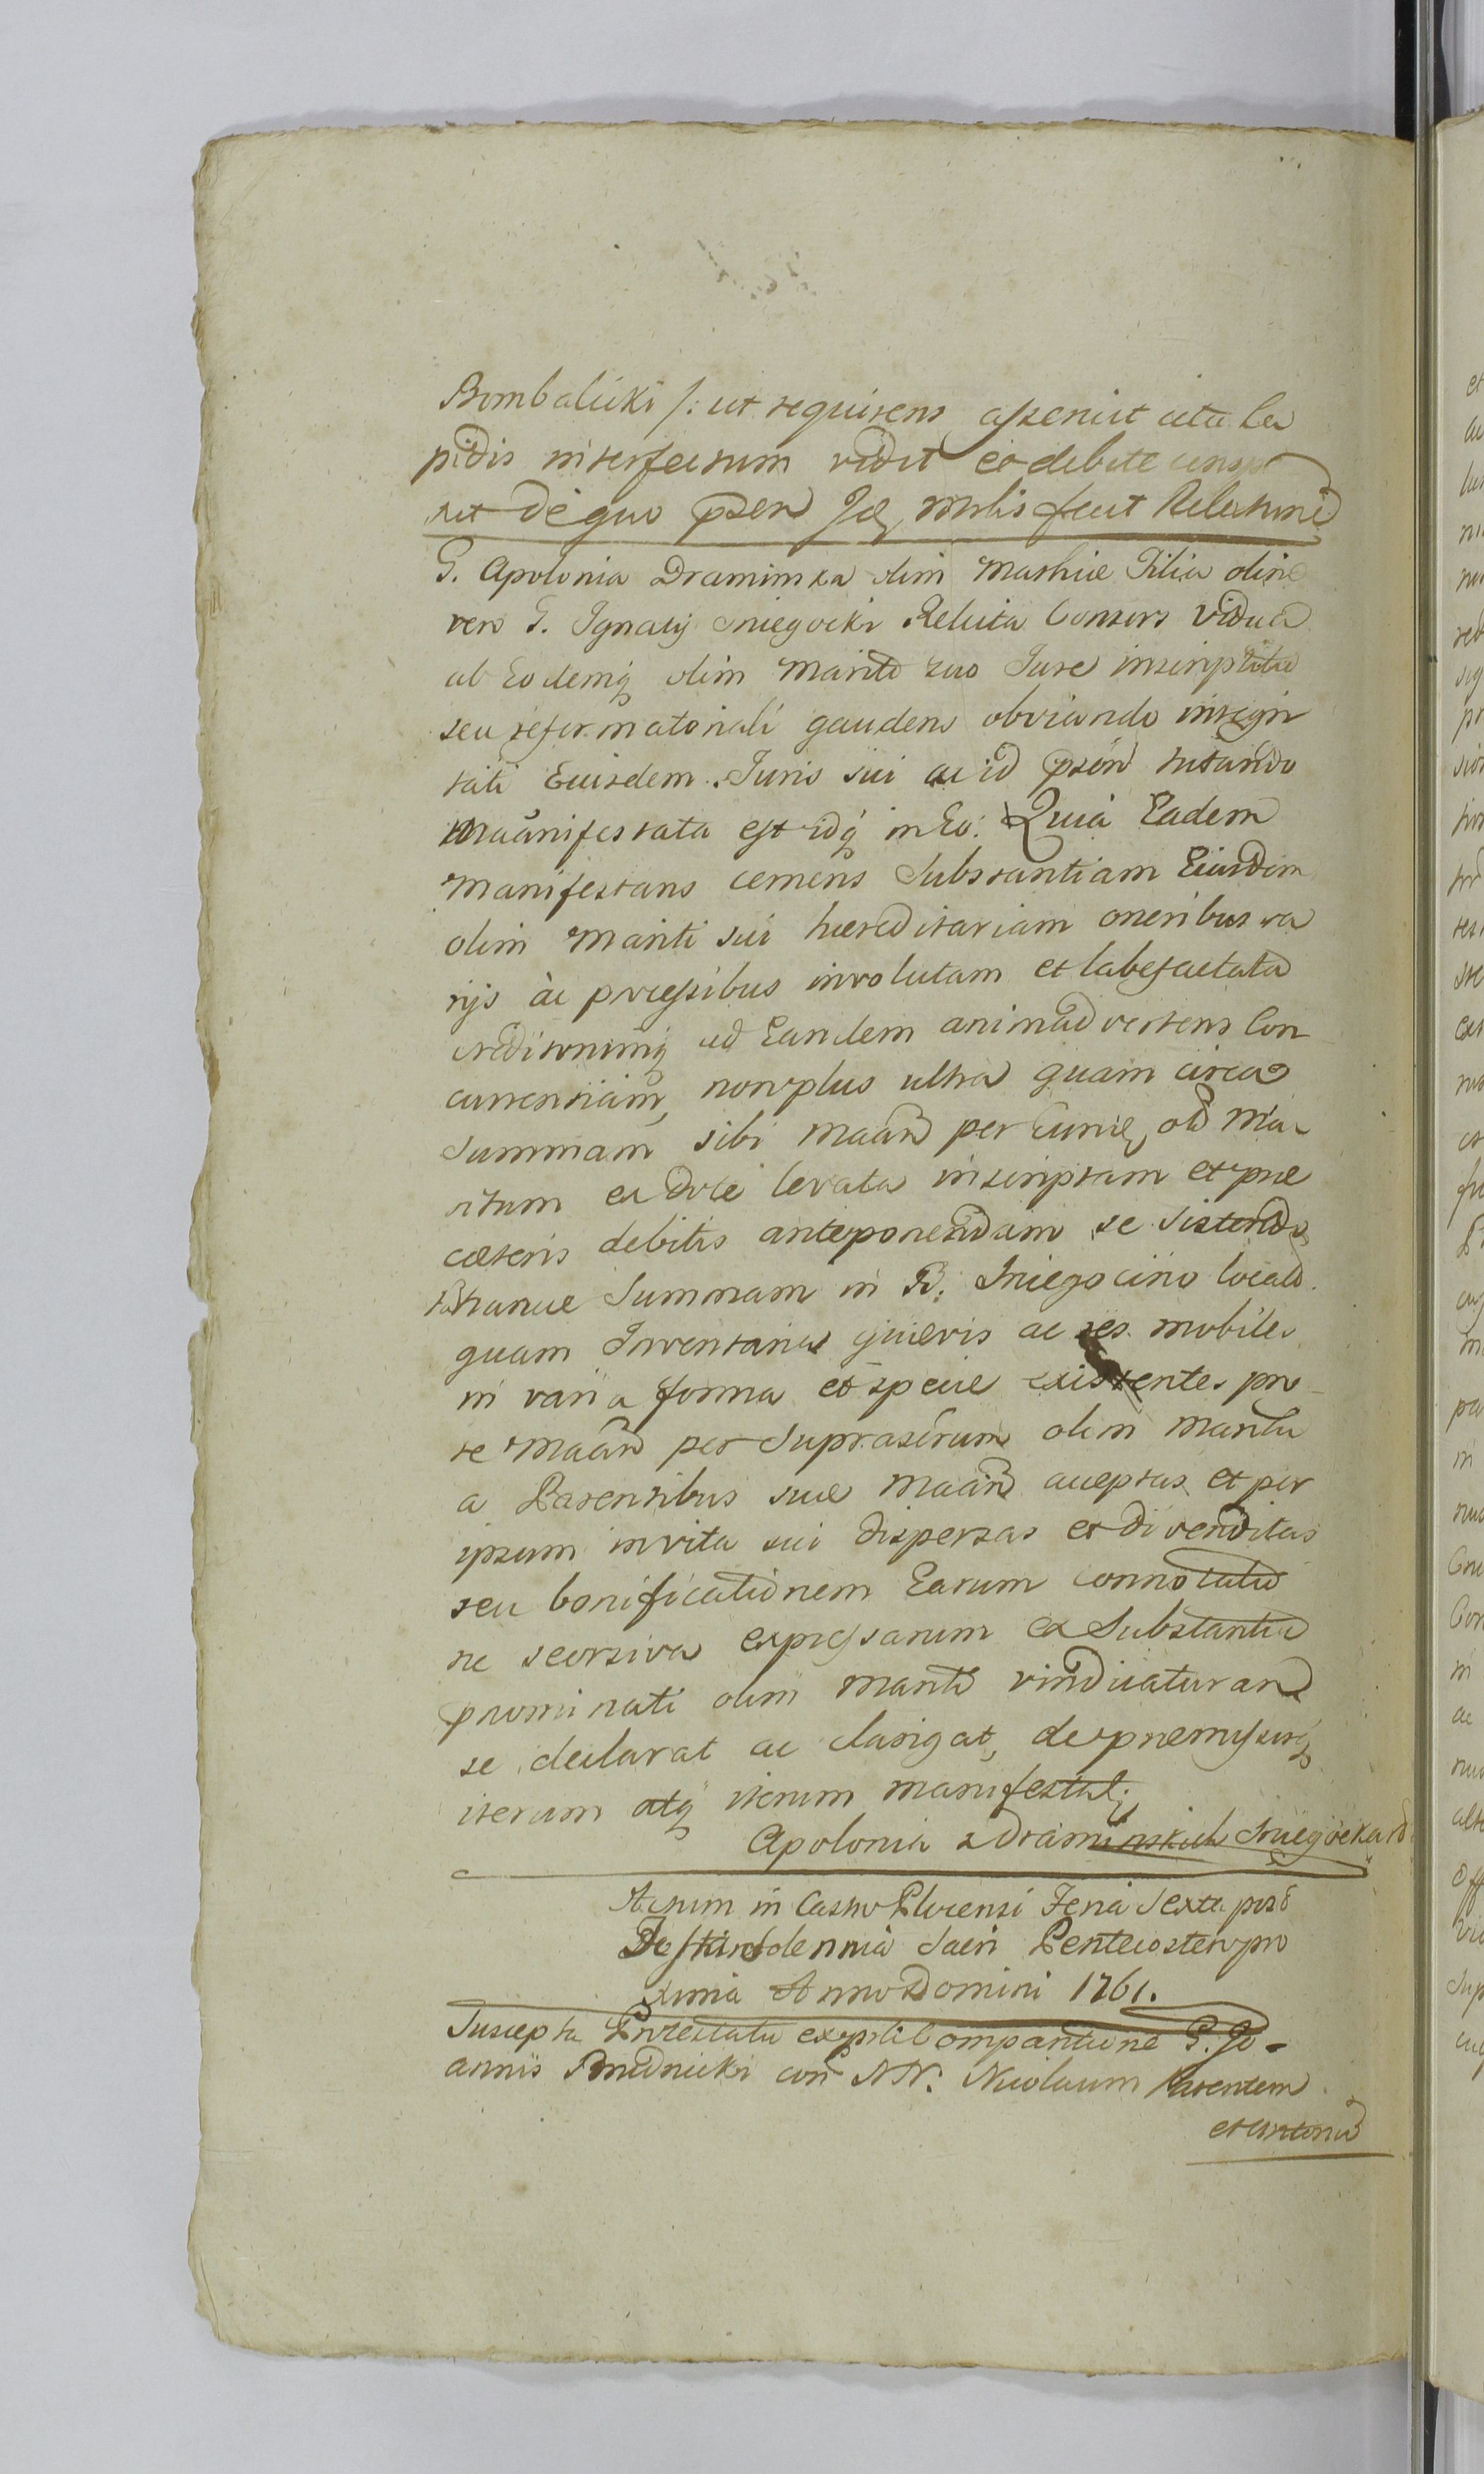 Bombalicki /: ut requirens asseruit ictu la
pidis interfectum vidit et debite conspe
xit de quo præsen Jdq, mtlis fecit Relationē
G. Apolonia Draminska olim Mathiæ Filia olim
vero G. Ignatij Sniegocki Relicta Consors vidua
ab Eodemq olim Marito suo Jure inscriptitio
seu reformatoriali gaudens obviando integri
tati Euisdem Juris sui ac id præsen tutando
Maanifestata est idq in Eo: Quia Eadem
Manifestans cernens Substantiam Eiusdem
olim Mariti sui hæreditariam oneribus va
rijs ac processibus involutam et labefactatā
creditorumq ad Eandem animadvertens Con
currentiam, non plus ultra quam circa
Summam sibi Maan per Eund, olim Ma-
ritum ex dote levata inscriptam et præ
cæteris debitis anteponendam se sistendo
hanc Summam in B. Sniegocino locatā
quam Inventaria cujusvis ac res mobiles
in varia forma et specie existentes pro-
te Maan per Suprascrum olim Maritu
a Parentibus suæ Maan acceptas et per
ipsum in vita sui dispersas et divenditas
seu bonificationem Earum connotatio
ne seorsiva expressarum ex Substantia
prominati olim Mariti vindicaturam
se declarat ac clarigat, de præmissisq
iterum atq iterum manifestat;
Apolonia z Draminskich Sniegocka
Actum in Castro Plocensi Feria Sexta post
Festum Solennia Sacri Pentecosten pro
xima Anno Domini 1761.
Suscepta Protestatu ex psli Compantione G. Jo-
annis Brudnicki con NN: Nicolaum Parentem
et Antoniū